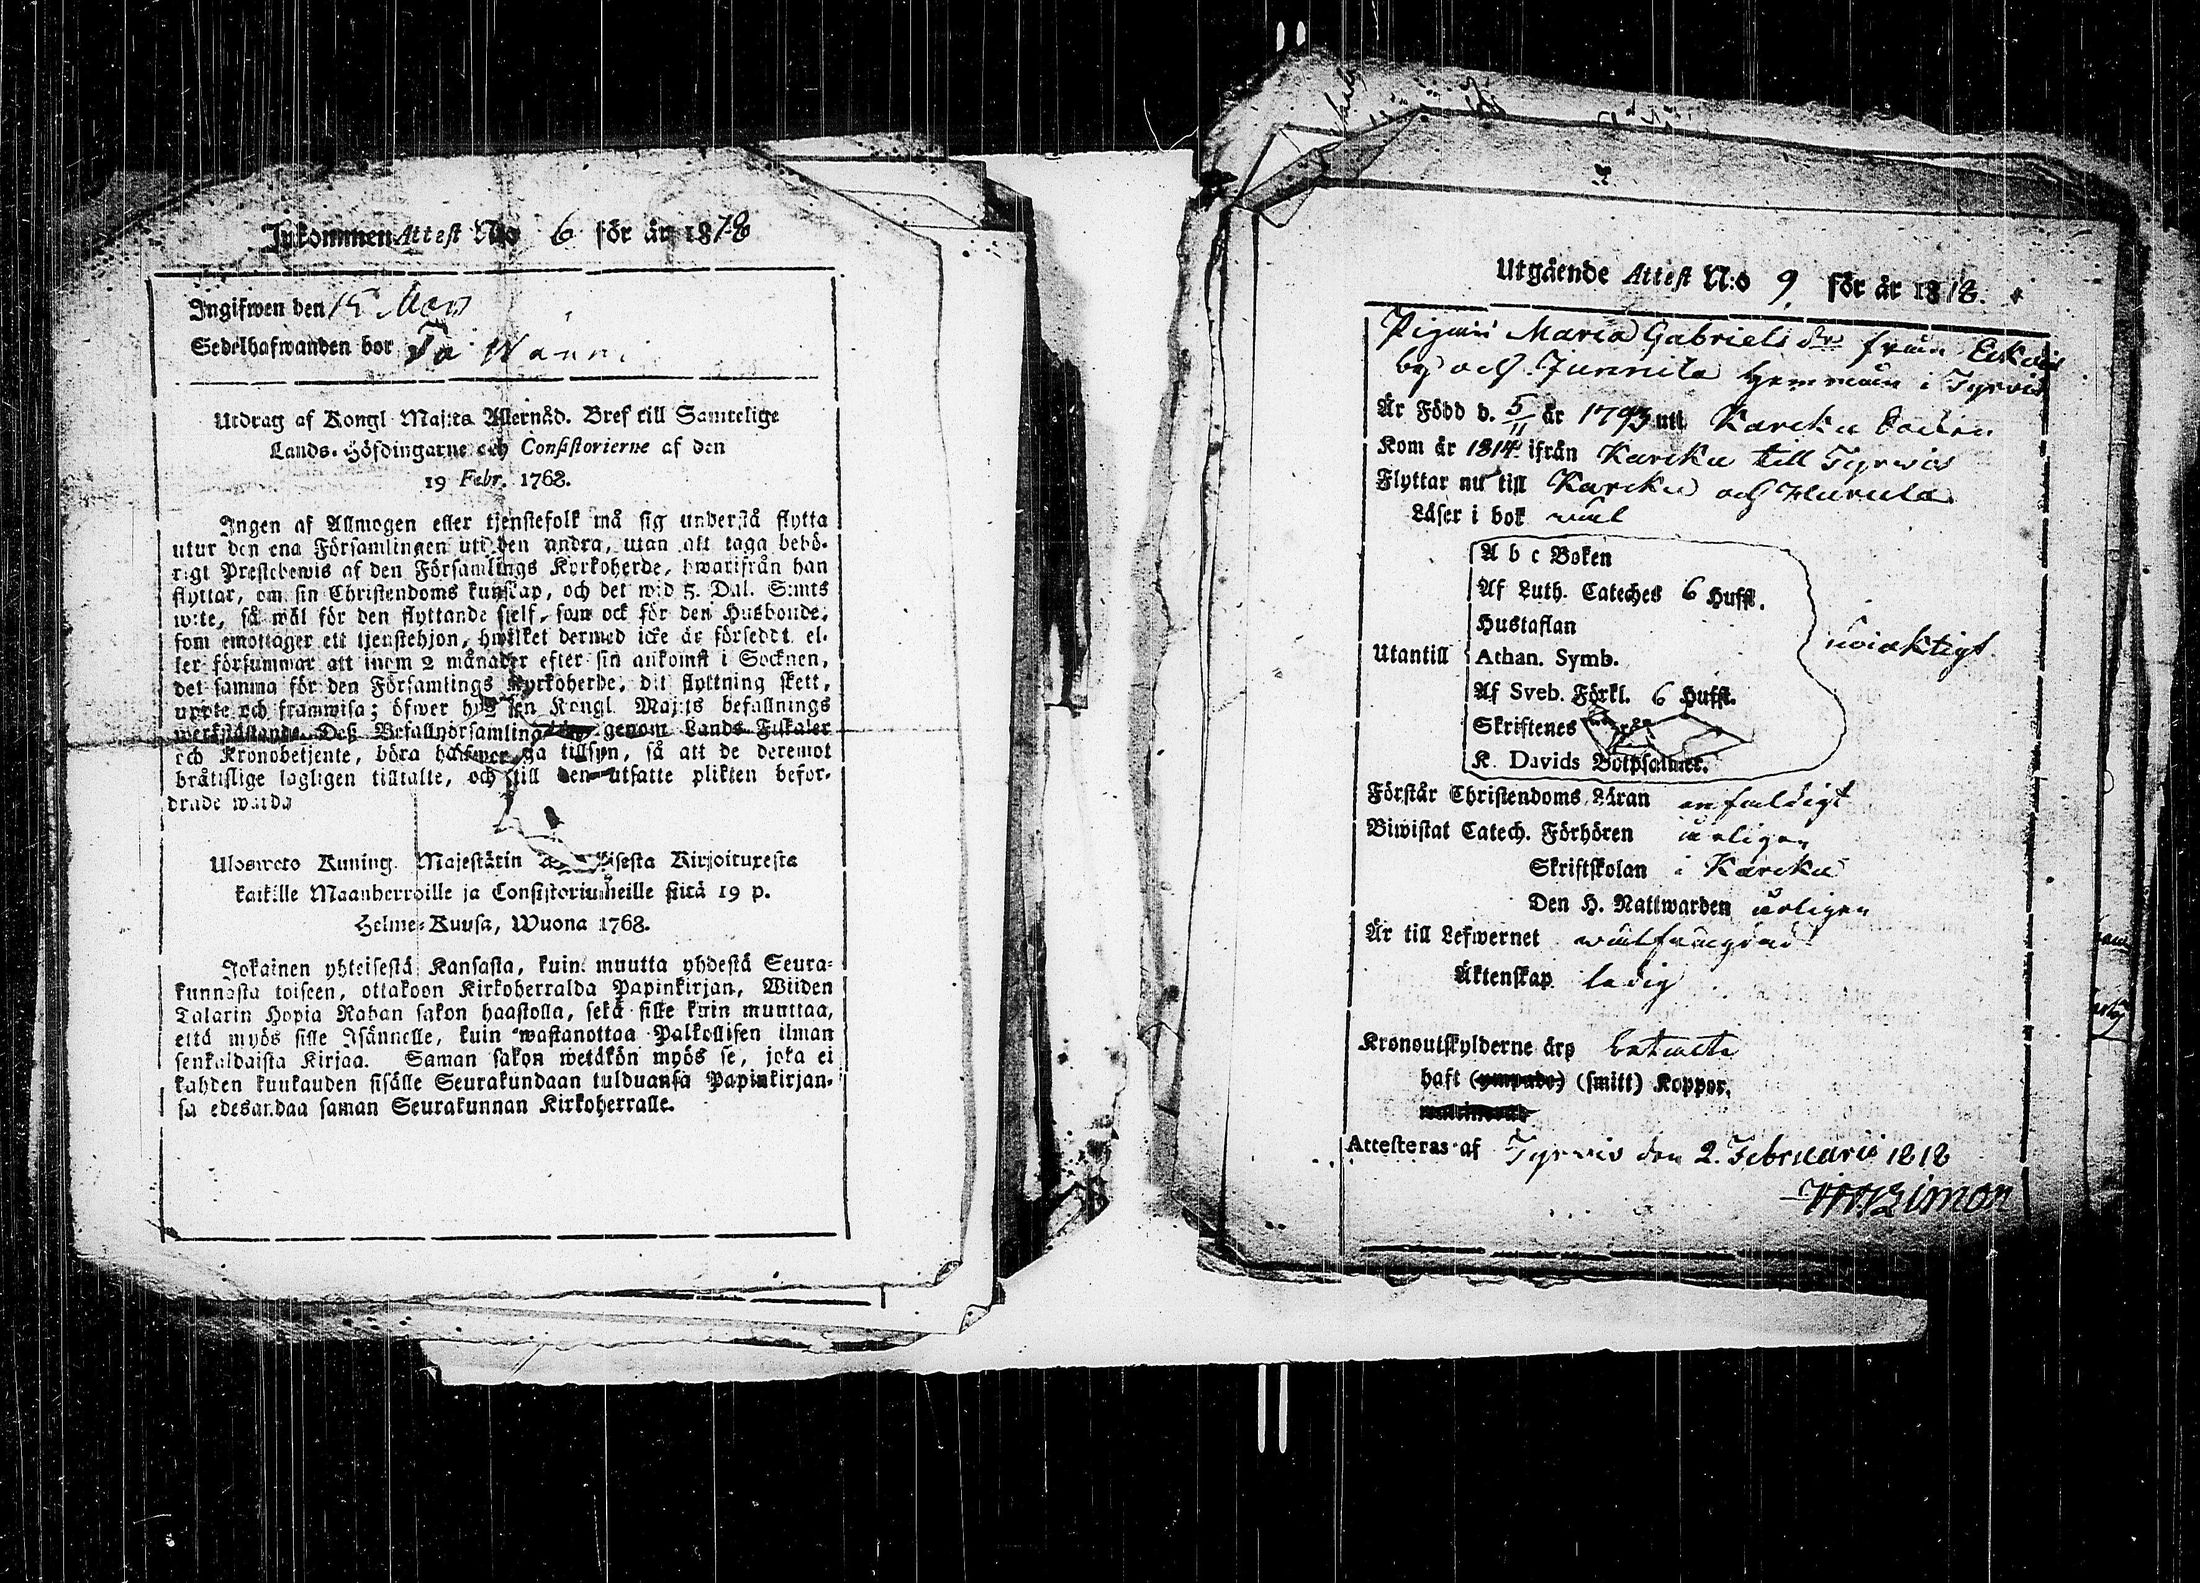 Inkommen Attest No 6 för år 1818
Ingifwen den 15 Mars
Sedelhafwanden bor På
Utdrag af Kongl Maj:ts Allernåd. Bref till Samtelige
Lands-Höfdingarne och Consistorierne af den
19 Febr. 1768.
Ingen af Allmogen eller tjenstefolk må sig understå flytta
utur den ena Församlingen uti den andra, utan att taga behö-
rigt Prestebewis af den Församlings Kyrkoherde, hwarifrån han
flyttar, om sin Christendoms kunskap, och det wid 5. Dal. S:mts
wite, så wäl för den flyttande sjelf, som ock för den Husbonde,
som emottager ett tjenstehjon, hwilket dermed icke är försedt el-
ler försummar att inom 2 månader efter sin ankomst i Socknen,
det samma för den Församlings Kyrkoherde, dit flyttning skett,
uppte och framwisa; öfwer Kongl. Maj:ts befallnings
werkställande Deß genom Lands Fiskaler
och Kronobetjente, böra tillsyn, så att de deremot
bråttslige lagligen tilltalte, och till den utsatte plikten befor-
drade warda
Uloswето Kuning. Majestätin Kirjoituxesta
kaikille Maanherroille ja Consistoriumeille siitä 19 p.
Helme-Kuusa, Wuona 1768.
Jokainen yhteisestä Kansasta, kuin muutta yhdestä Seura-
kunnasta toiseen, ottakoon Kirkoherralda Papinkirjan, Wiiden
Talarin Hopia Rahan sakon haastolla, sekä sille kuin muuttaa,
että myös sille Isännelle, kuin wastanottaa Palkollisen ilman
senkaldaista Kirjaa. Saman sakon wetäkön myös se, joka ei
kahden kuukauden sisälle Seurakundaan tulduansa Papinkirjan-
sa edesandaa saman Seurakunnan Kirkoherralle.
Utgående Attest N:o 9 för år 1818.
Pigan Maria Gabriels dr från
by och Junnila Hemman i Tyrvis
Är Född d. 5/11 år 1793 uti Karcku Socken
Kom år 1814 ifrån Karcku till Tyrvis
Flyttar nu till Karcku och
Läser i bok wäl
A b c Boken
Af Luth. Cateches 6 Hufst.
Hustaflan
Utantill Athan. Symb. oriktigt
Af Sveb. Förkl. 6 Hufst.
Skriftenes
K. Davids Botpsalmer.
Förstår Christendoms Läran enfaldigt
Biwistat Catech. Förhören årligen
Skriftskolan i Karcku
Den H. Nattwarden årligen
Är till Lefwernet wälfrägdad
Äktenskap ledig
Kronoutskylderne äro betalte
haft (ympade) (smitt) Koppor,
Attesteras af Tyrvis den 2. Februarii 1818